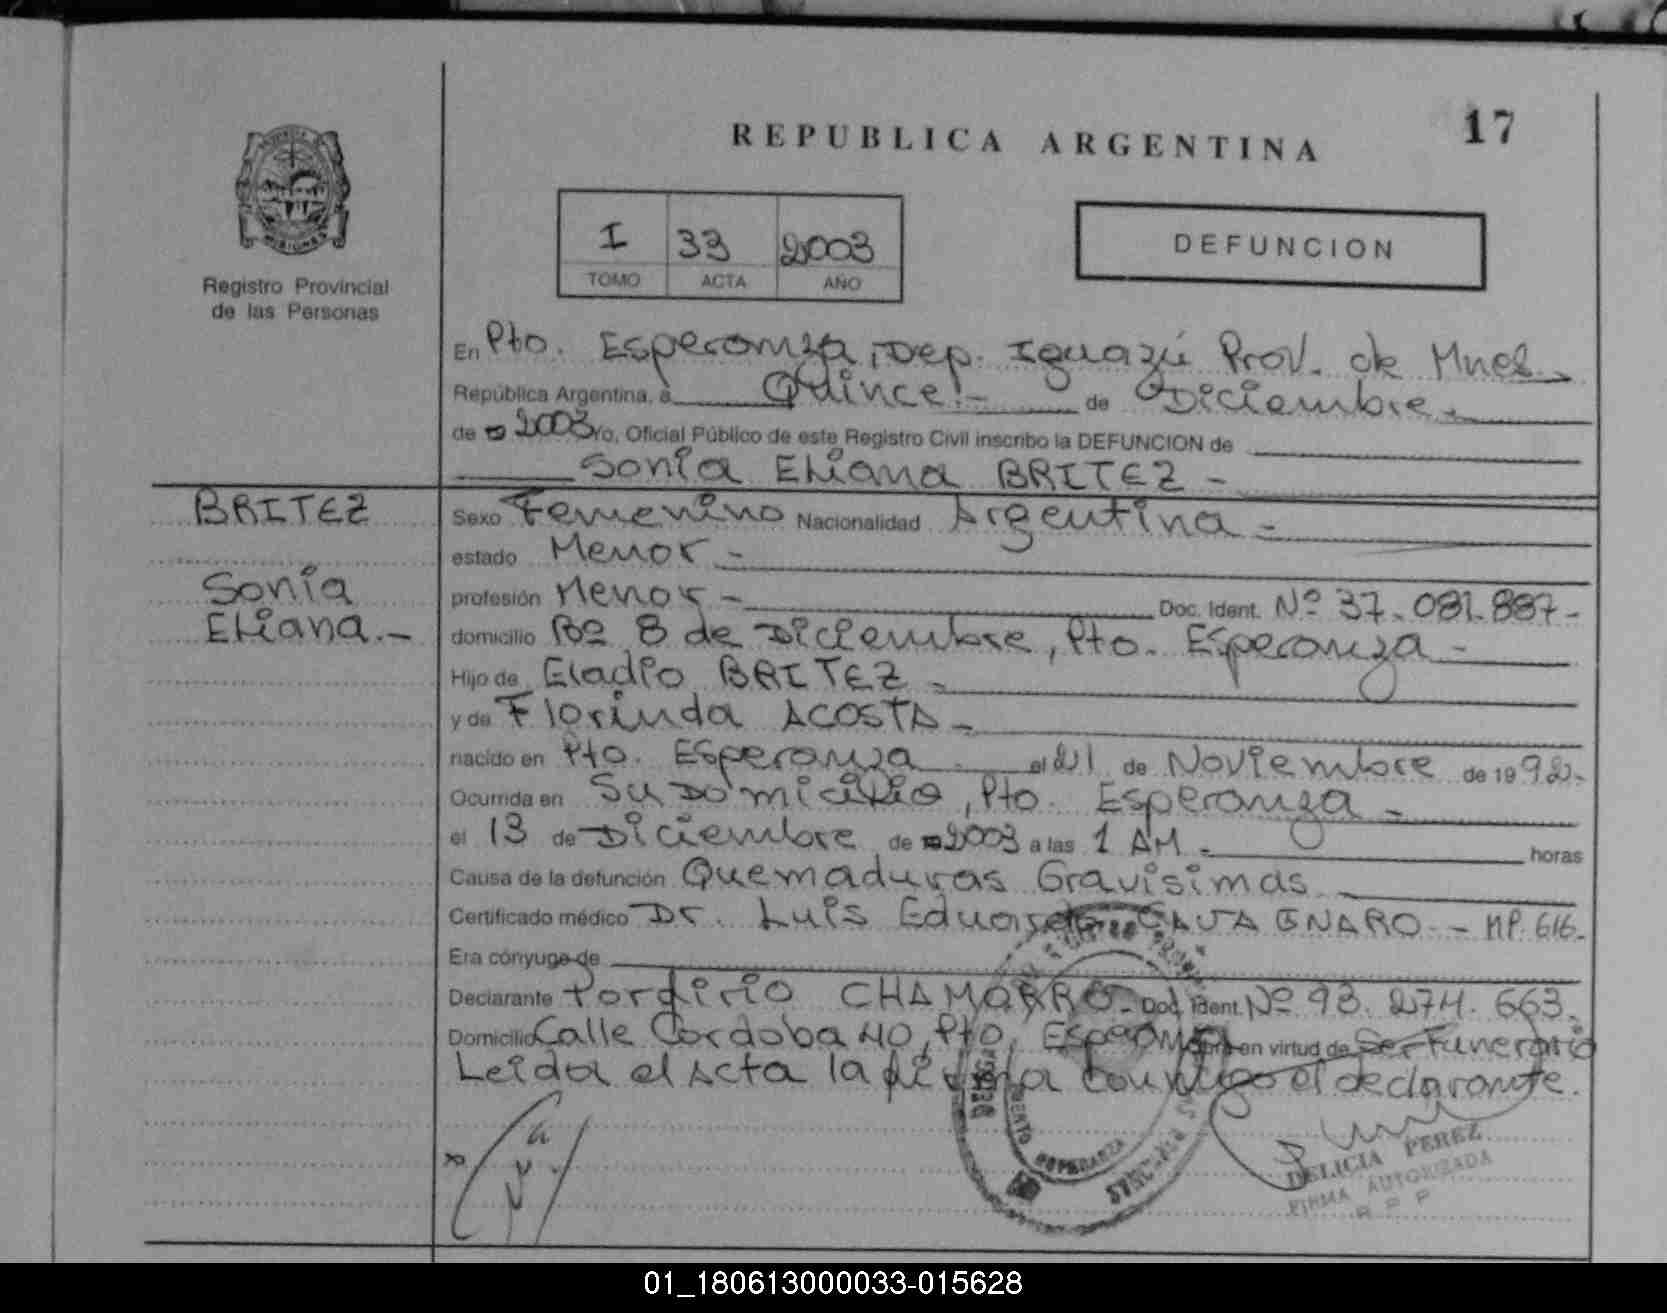 REPUBLICA ARGENTINA
17
MISIONES
Registro Provincial
de las Personas
I 33 2003
TOMO ACTA AÑO
DEFUNCION
En Pto. Esperanza, Dep. Iguazú Prov. de Mnes.
República Argentina, a Quince.- de Diciembre.
de 2003 Yo, Oficial Público de este Registro Civil inscribo la DEFUNCION de
Sonia Eliana BRITEZ -
BRITEZ
Sonia
Eliana.-
Sexo Femenino Nacionalidad Argentina -
estado Menor -
profesión Menor - Doc. Ident. Nº 37.081.887-
domicilio Bº 8 de Diciembre, Pto. Esperanza -
Hijo de Eladio BRITEZ -
y de Florinda ACOSTA -
nacido en Pto. Esperanza el 21 de Noviembre de 1992.
Ocurrida en Su Domicilio, Pto. Esperanza -
el 13 de Diciembre de 2003 a las 1 AM - horas
Causa de la defunción Quemaduras Gravisimas
Certificado médico Dr. Luis Eduardo CAVAGNARO - MP. 616.
Era cónyuge de
Declarante Porfirio CHAMORRO - Doc. Ident. Nº 93.274.663.
Domicilio Calle Cordoba 40, Pto. Esperanza en virtud de Ser Funerario
Leida el Acta la firma conmigo el declarante.
ESPERANZA
DELICIA PEREZ
FIRMA AUTORIZADA
R P P
01_180613000033-015628